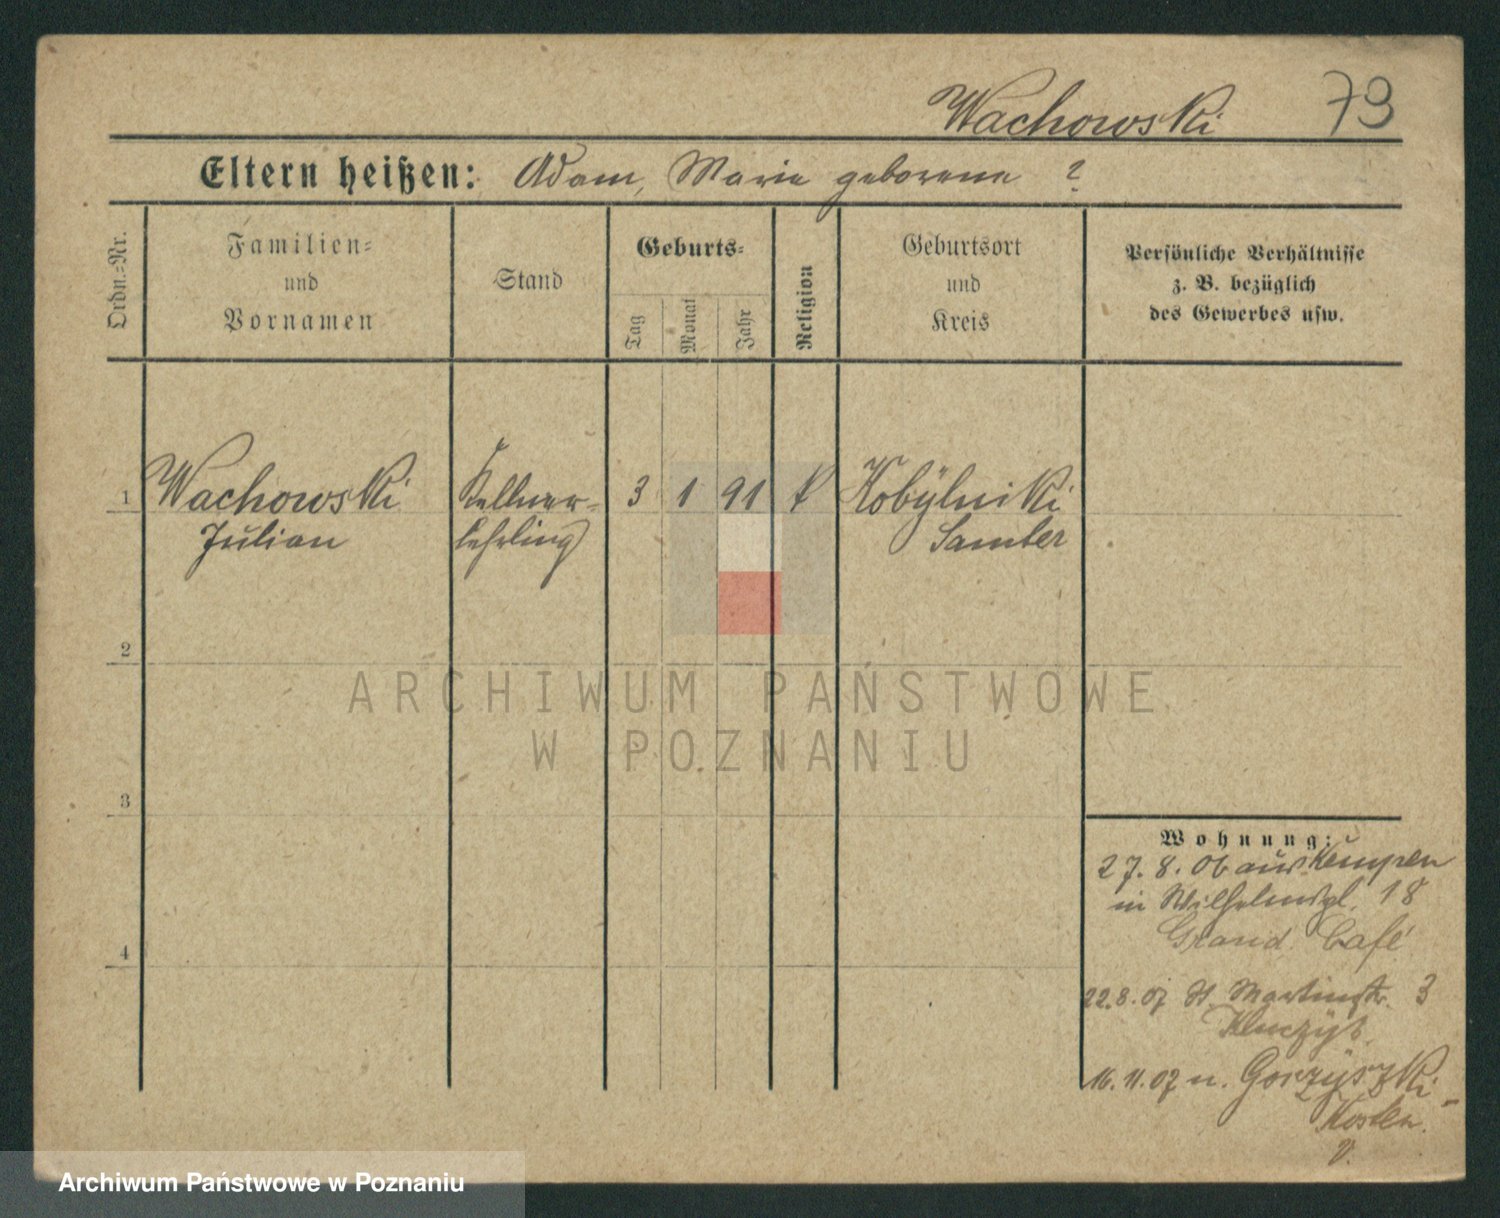 Wachowski 79
Eltern heißen: Adam, Marie geborene ?
Ordn.-Nr.
Familien-
und
Vornamen
Stand
Geburts-
Tag
Monat
Jahr
Religion
Geburtsort
und
Kreis
Persönliche Verhältnisse
z. B. bezüglich
des Gewerbes usw.
1 Wachowski Kellner- 3 1 91 k Kobylniki
Julian lehrling Samter
2
ARCHIWUM PAŃSTWOWE
W POZNANIU
3
4
Wohnung:
27. 8. 06 aus Kempen
in Wilhelmspl. 18
Grand Café
22.8.07 St. Martinstr. 3
16.11.07 n. Gorzyszki
Kosten
Archiwum Państwowe w Poznaniu